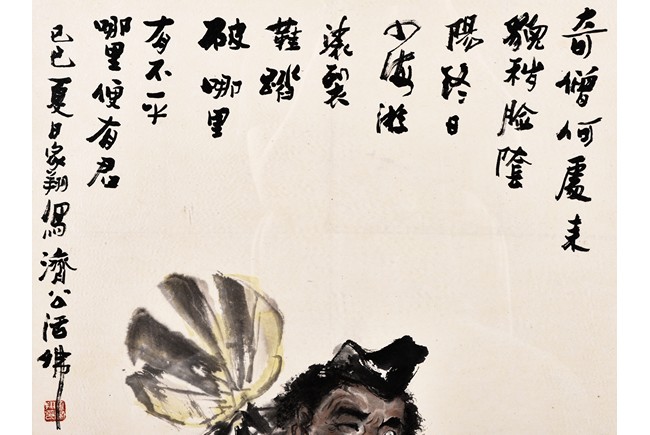 奇僧何處來
貌臉陰
陽終日
海游
裂
鞋踏
破哪里
有不平
哪里便有君
己巳夏日家翔寫濟公活佛